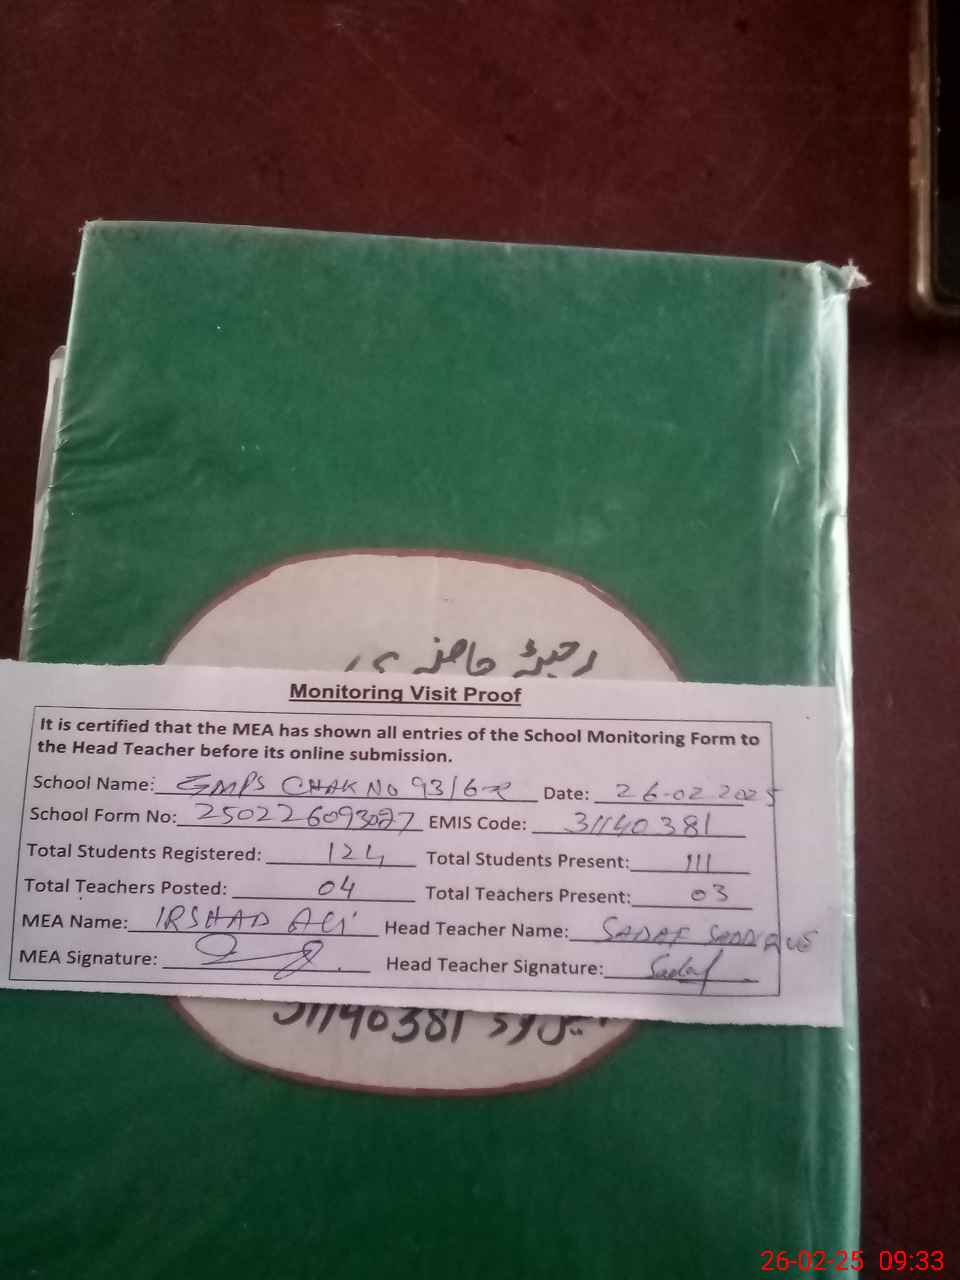 رجسٹر حاضری
Monitoring Visit Proof
It is certified that the MEA has shown all entries of the School Monitoring Form to
the Head Teacher before its online submission.
School Name: GMPS CHAK NO 93/6-R Date: 26-02-2025
School Form No: 250226093027 EMIS Code: 31140381
Total Students Registered: 124 Total Students Present: 111
Total Teachers Posted: 04 Total Teachers Present: 03
MEA Name: IRSHAD ALI Head Teacher Name: SADAF SADDIQUE
MEA Signature: Head Teacher Signature: Sadaf
31140381
26-02-25 09:33